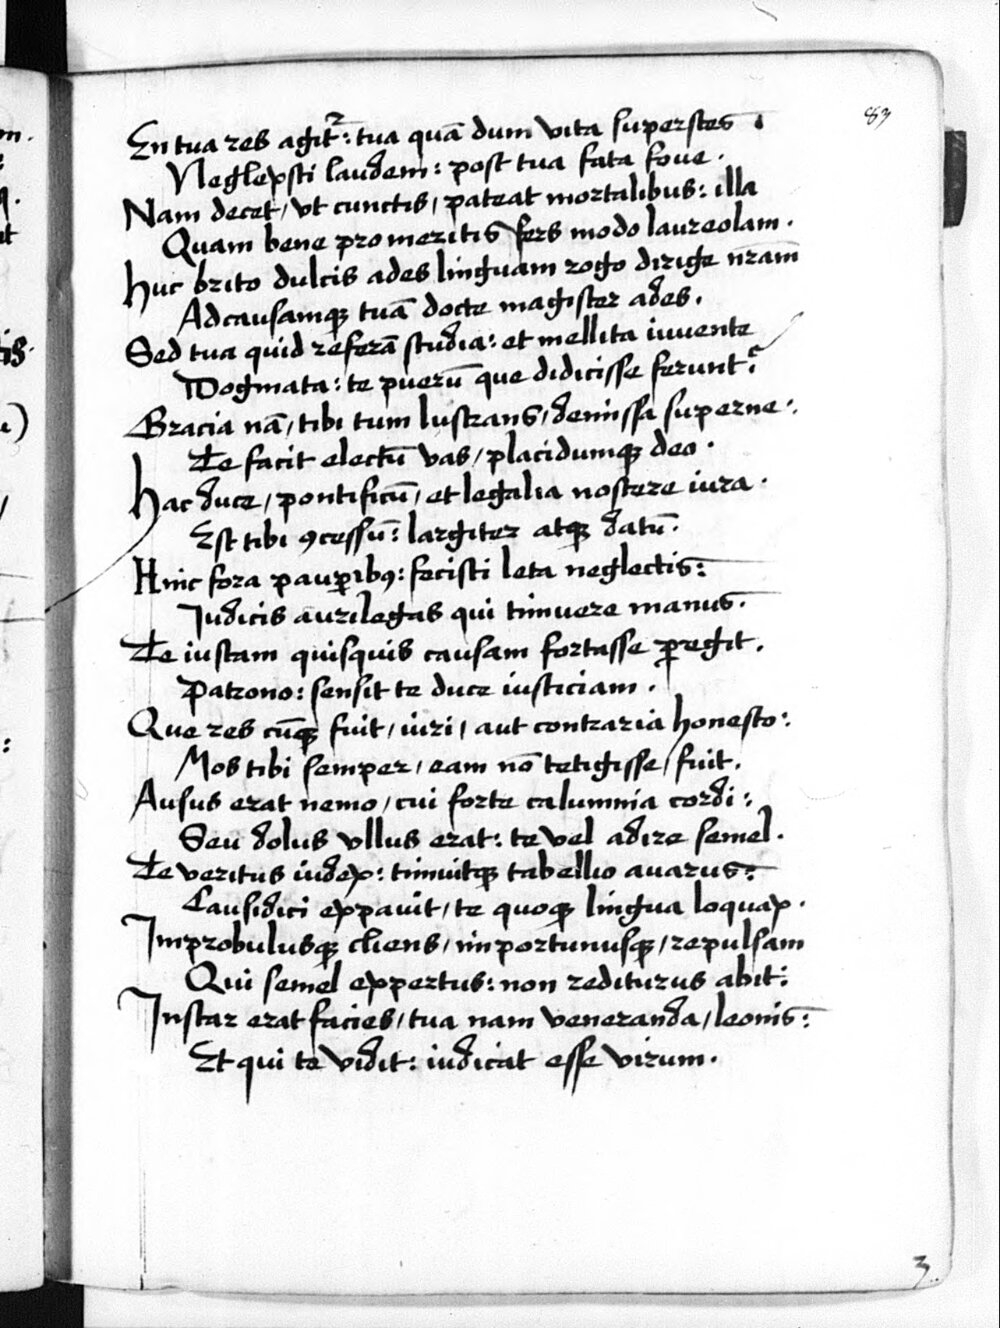 83
En tua res agitr̃: tua quā dum vita superstes
Neglexsti laudem: post tua fata foue.
Nam decet, vt cunctis, pateat mortalibus: illa
Quam bene promeritis fers modo laureolam.
Huc brito dulcis ades linguam rogo dirige nr̄am
Ad causamqꝫ tuā docte magister ades.
Sed tua quid referā studia: et mellita iuuente
Dogmata: te puerū que didicisse ferunt:
Gracia nā, tibi tum lustrans, demissa superne:
Te facit electū vas, placidumqꝫ deo.
Hac duce, pontificū, et legalia noscere iura.
Est tibi ꝯcessū: largiter atqꝫ datū.
Hinc fora pauꝑibꝰ: fecisti leta neglectis:
Iudicis aurilegas qui timuere manus.
Te iustam quisquis causam fortasse ꝑegit.
Patrono: sensit te duce iusticiam.
Que res cūqꝫ fuit, iuri, aut contraria honesto:
Mos tibi semper, eam nō tetigisse, fuit.
Ausus erat nemo, cui forte calumnia cordi:
Seu dolus vllus erat: te vel adire semel.
Te veritus iudex: timuitqꝫ tabellio auarus:
Causidici expauit, te quoqꝫ lingua loquax.
Improbulusqꝫ cliens, importunusqꝫ, repulsam
Qui semel expertus: non rediturus abit:
Instar erat facies, tua nam veneranda, leonis:
Et qui te vidit: iudicat esse virum.
3